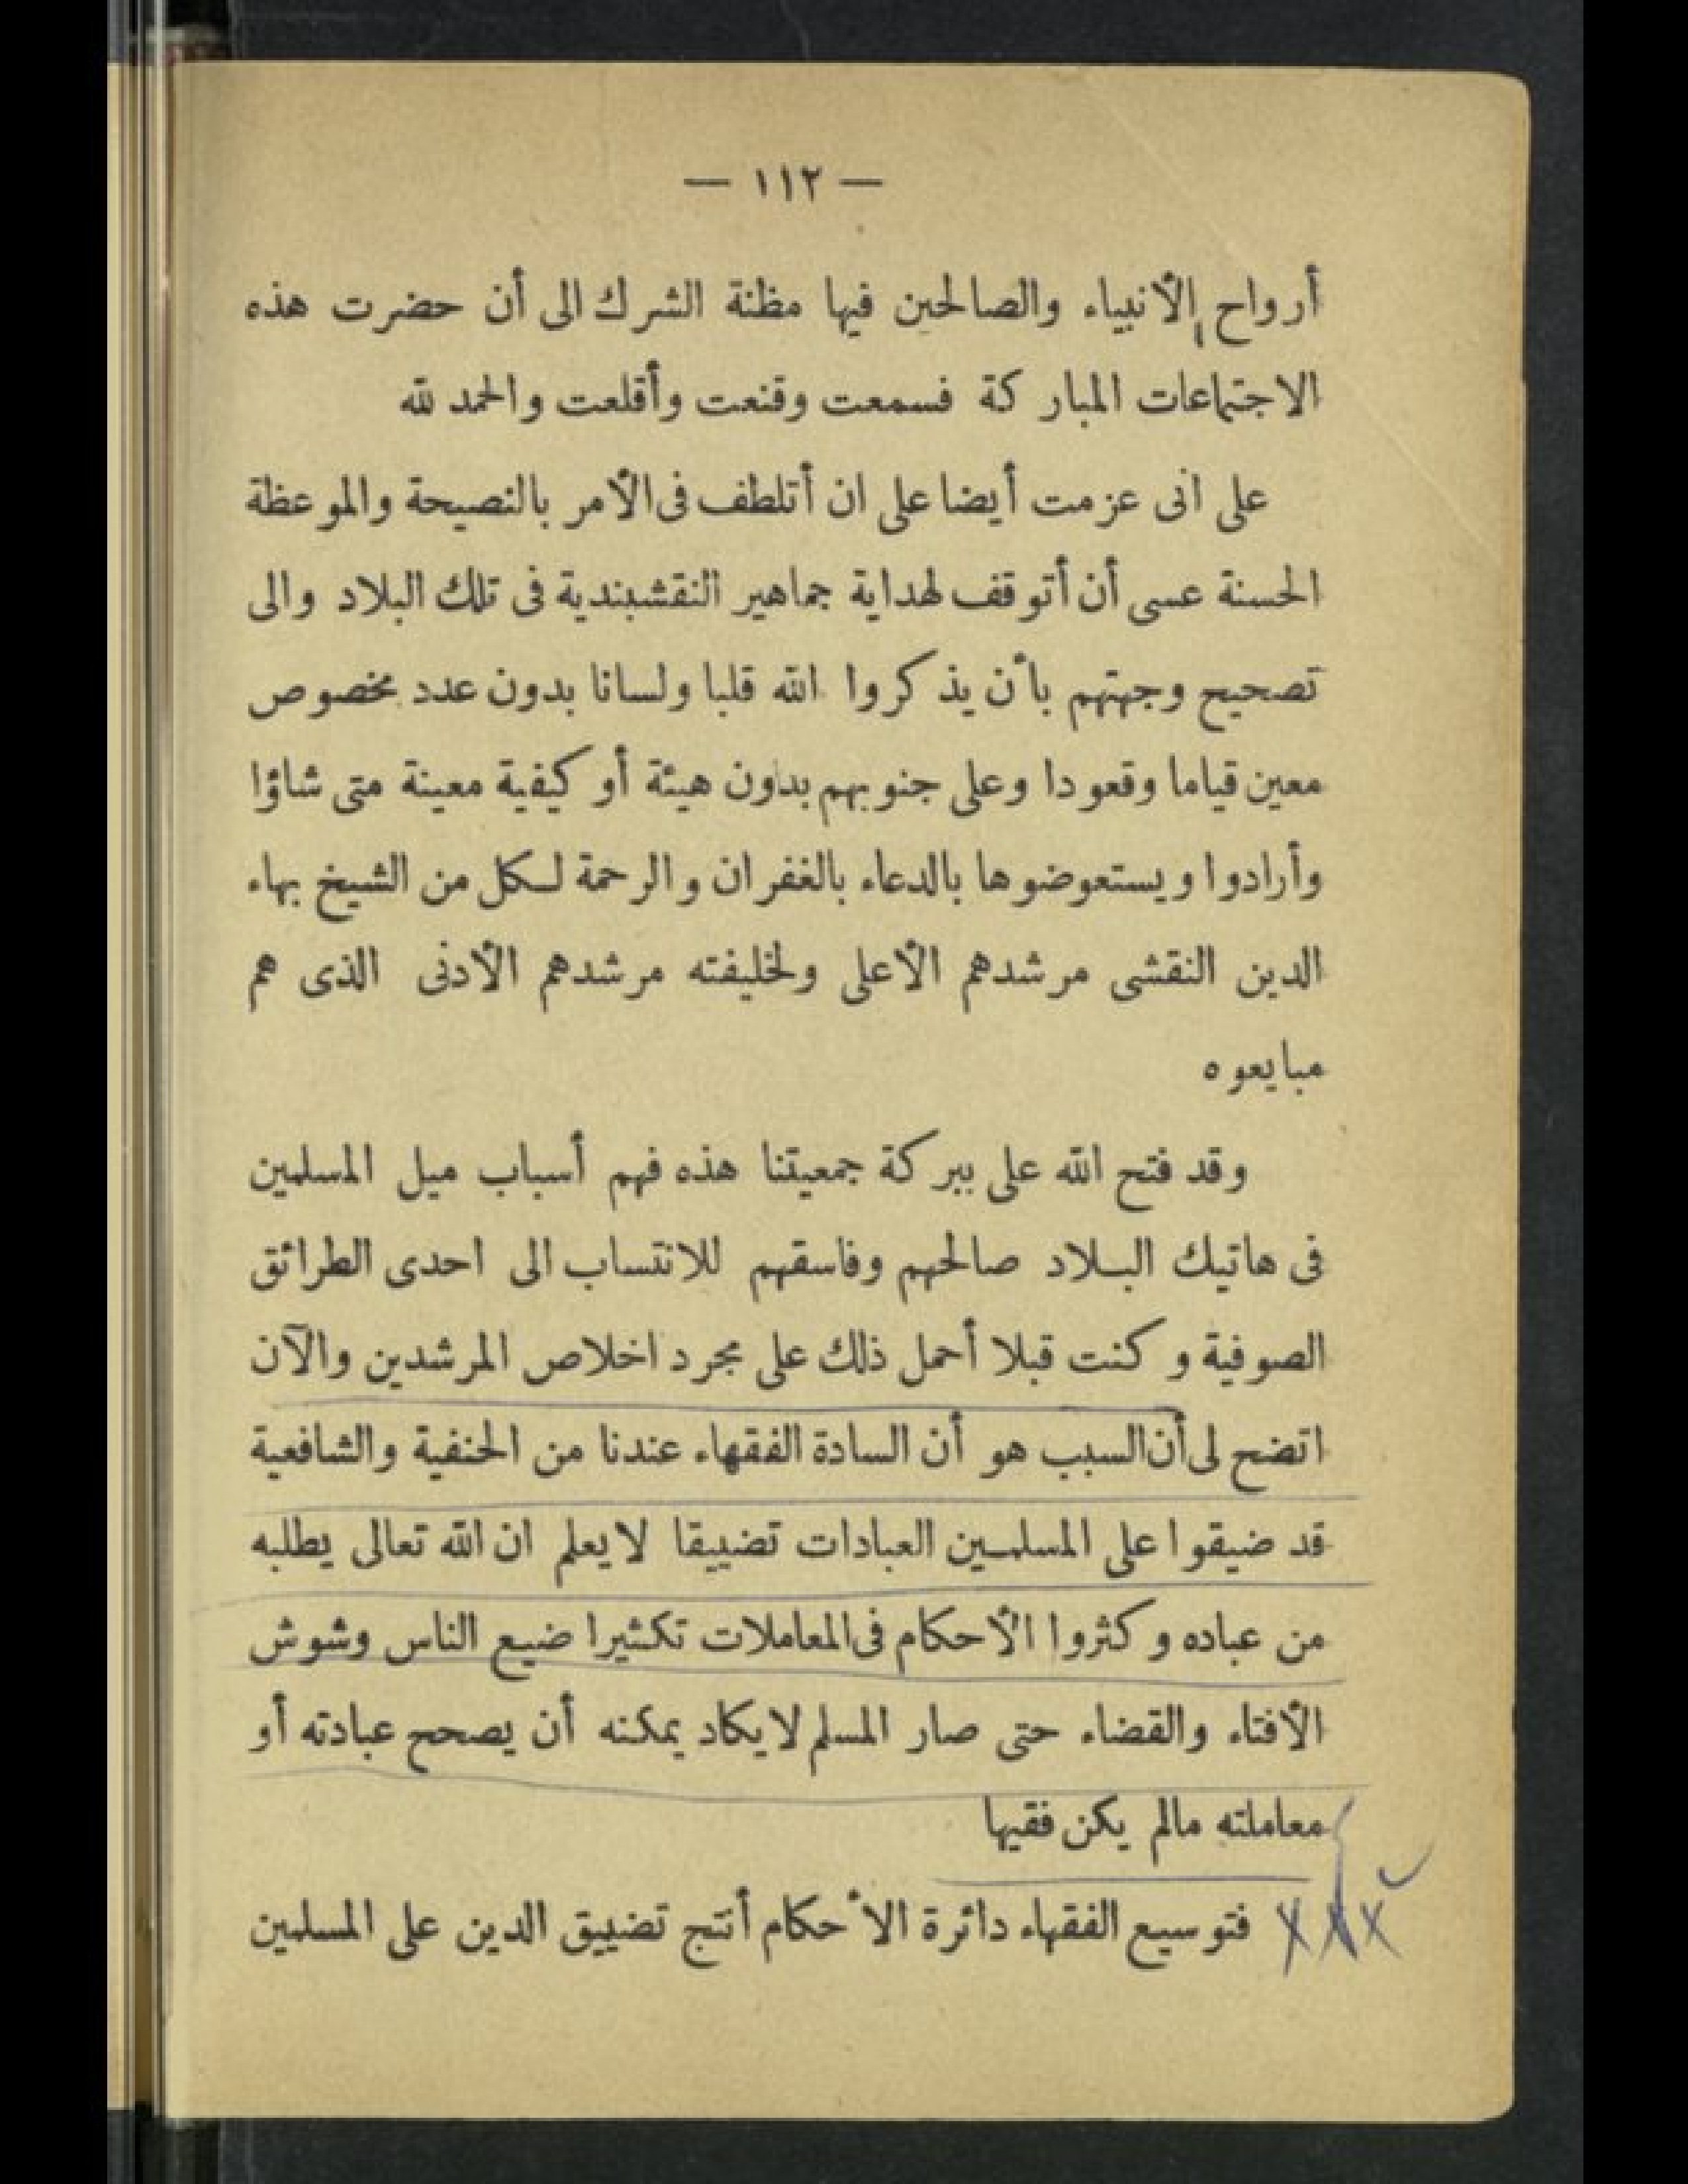 — ١١٢ —
أرواح الأنبياء والصالحين فيها مظنة الشرك الى أن حضرت هذه
الاجتماعات المباركة فسمعت وقنعت وأقلعت والحمد لله
على انى عزمت أيضا على ان أتلطف فى الأمر بالنصيحة والموعظة
الحسنة عسى أن أتوقف لهداية جماهير النقشبندية فى تلك البلاد والى
تصحيح وجهتهم بأن يذكروا الله قلبا ولسانا بدون عدد مخصوص
معين قياما وقعودا وعلى جنوبهم بدون هيئة أو كيفية معينة متى شاؤا
وأرادوا ويستعوضوها بالدعاء بالغفران والرحمة لكل من الشيخ بهاء
الدين النقشى مرشدهم الأعلى ولخليفته مرشدهم الأدنى الذى هم
مبايعوه
وقد فتح الله على ببركة جمعيتنا هذه فهم أسباب ميل المسلمين
فى هاتيك البلاد صالحهم وفاسقهم للانتساب الى احدى الطرائق
الصوفية وكنت قبلا أحمل ذلك على مجرد اخلاص المرشدين والآن
اتضح لى أن السبب هو أن السادة الفقهاء عندنا من الحنفية والشافعية
قد ضيقوا على المسلمين العبادات تضييقا لا يعلم ان الله تعالى يطلبه
من عباده وكثروا الأحكام فى المعاملات تكثيرا ضيع الناس وشوش
الأفتاء والقضاء حتى صار المسلم لا يكاد يمكنه أن يصحح عبادته أو
معاملته مالم يكن فقيها
xxx فتوسيع الفقهاء دائرة الأحكام أنتج تضييق الدين على المسلمين